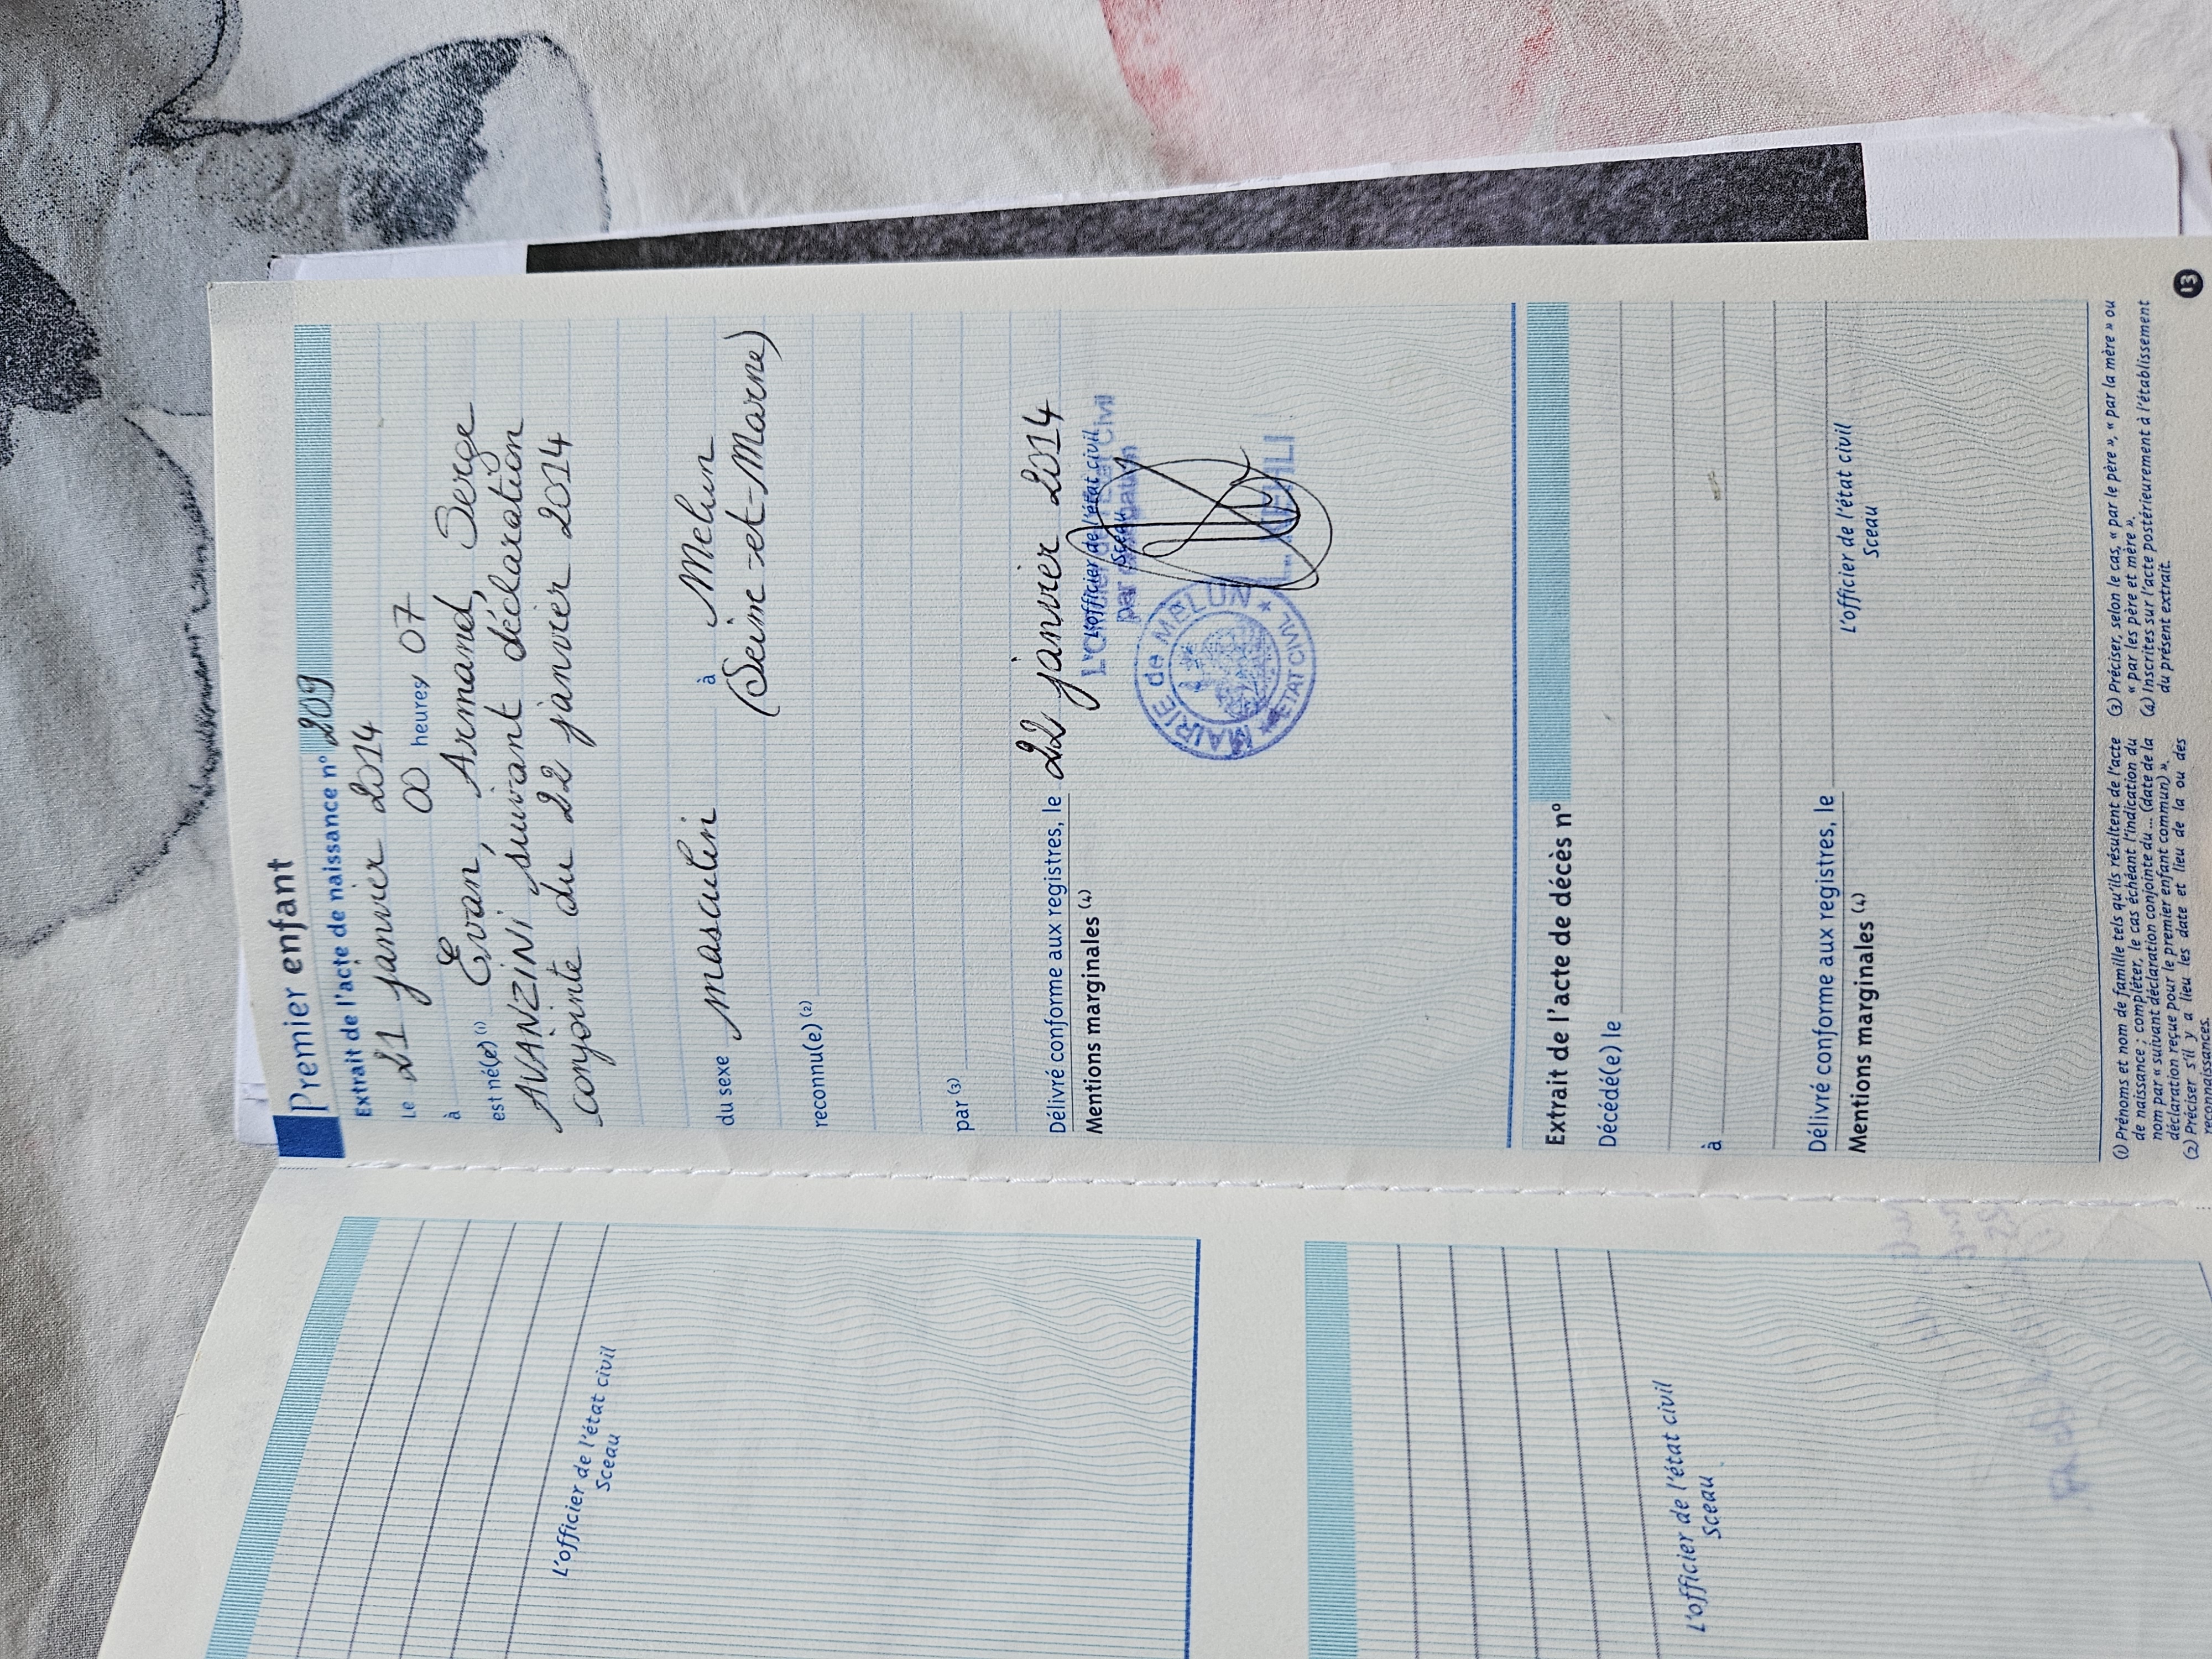 Premier enfant
Extrait de l'acte de naissance n° 209
Le 21 janvier 2014
à 00 heures 07
est né(e) (1) Evan, Armand, Serge
AVANZINI suivant déclaration
conjointe du 22 janvier 2014
du sexe masculin à Melun
(Seine-et-Marne)
reconnu(e) (2)
par (3)
Délivré conforme aux registres, le 22 janvier 2014
Mentions marginales (4)
L'officier de l'état civil
Sceau
par délégation
MAIRIE de MELUN
★ ETAT CIVIL ★
Extrait de l'acte de décès n°
Décédé(e) le
à
Délivré conforme aux registres, le
Mentions marginales (4)
L'officier de l'état civil
Sceau
(1) Prénoms et nom de famille tels qu'ils résultent de l'acte
de naissance ; compléter, le cas échéant l'indication du
nom par « suivant déclaration conjointe du ... (date de la
déclaration reçue pour le premier enfant commun) ».
(2) Préciser s'il y a lieu les date et lieu de la ou des
reconnaissances.
(3) Préciser, selon le cas, « par le père », « par la mère » ou
« par les père et mère ».
(4) Inscrites sur l'acte postérieurement à l'établissement
du présent extrait.
13
L'officier de l'état civil
Sceau
L'officier de l'état civil
Sceau